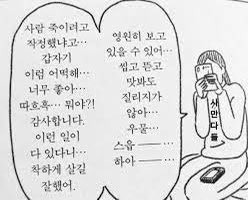 사람 죽이려고
작정했냐고…
갑자기
이럼 어떡해…
너무 좋아…
따흐흑… 뭐야?!
감사합니다.
이런 일이
다 있다니…
착하게 살길
잘했어.
영원히 보고
있을 수 있어…
씹고 뜯고
맛봐도
질리지가
않아…
우물…
스읍 ―― …
하아 ―― …